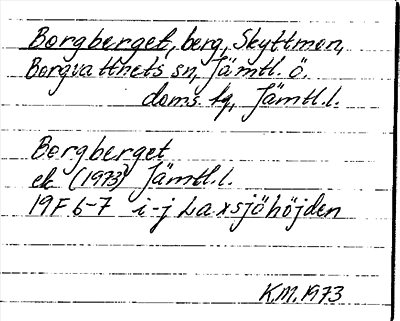 Borgberget, berg, Skyttmon,
Borgvattnets sn, Jämtl. ö.
doms. fg, Jämtl. l.
Borgberget
ek (1973) Jämtl. l.
19F 6-7 i-j Laxsjöhöjden
K.M. 1973